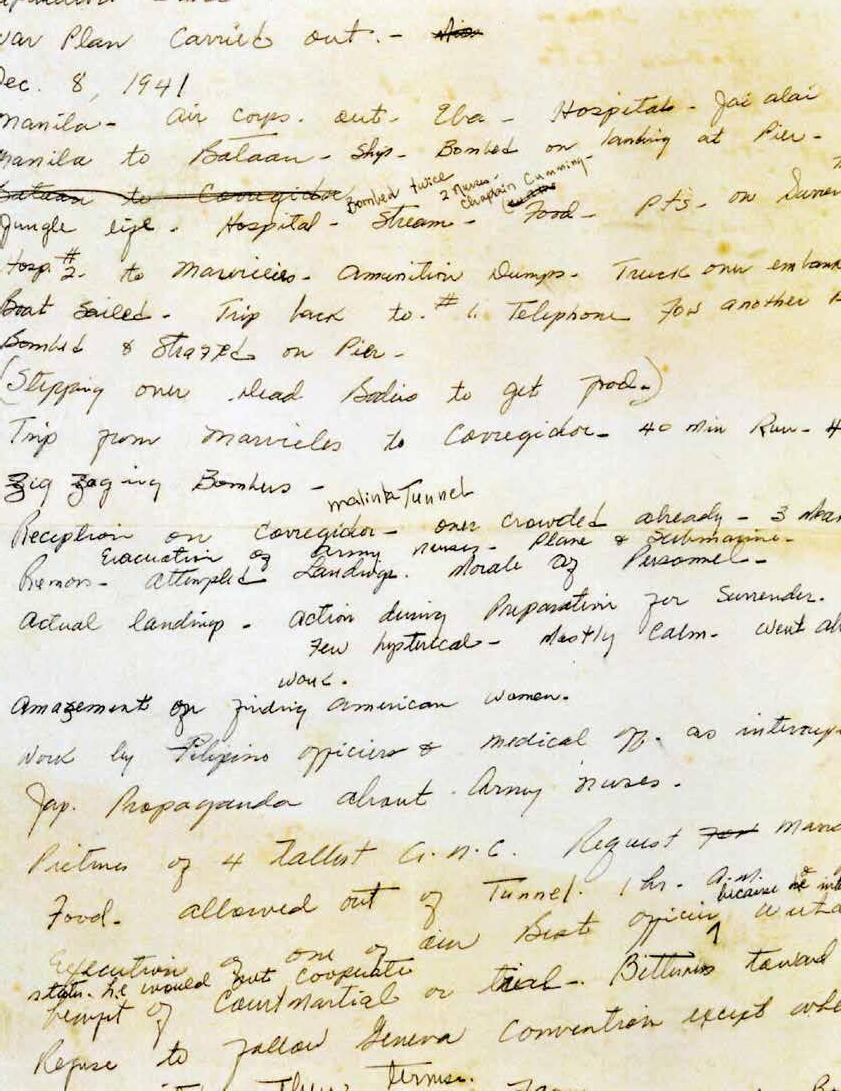 War Plan Carried out. -
Dec. 8, 1941
Manila - Air Corps. out - Eba - Hospitals - Jai alai
Manila to Bataan - Ship - Bombed on landing at Pier -
Bataan to Corregidor
Bombed twice
2 Nurses -
Chaplain Cumming -
Jungle life - Hospital - Stream - Food - Pts - on
Hosp. #2 to Marvieles - Amunition Dumps - Truck over
Boat Sailed - Trip back to. #1. Telephone For another
Bombed & Strafed on Pier -
(Stepping over Dead Bodies to get food.)
Trip from Marvieles to Corregidor - 40 Min Run -
Zig Zaging Bombers -
malinta Tunnel
Reception on Corregidor - over crowded already - 3
Evacuation of Army nurses - Plane & Submarine -
Rumors - attempted Landings. Morale of Personnel -
Actual landing - action during Preparation for Surrender.
Few hysterical - Mostly Calm - went
work.
Amazement on finding American women.
Work by Filipino officers & medical of. as
Jap. Propaganda about Army nurses.
Pictures of 4 tallest A.N.C. Request For
Food - allowed out of Tunnel. 1 hr. a.m.
because he
Execution of one of our Best officer
stated he would not cooperate
Courtmartial or trial - Bitterness toward
Refuse to follow Geneva Convention except
Their terms.